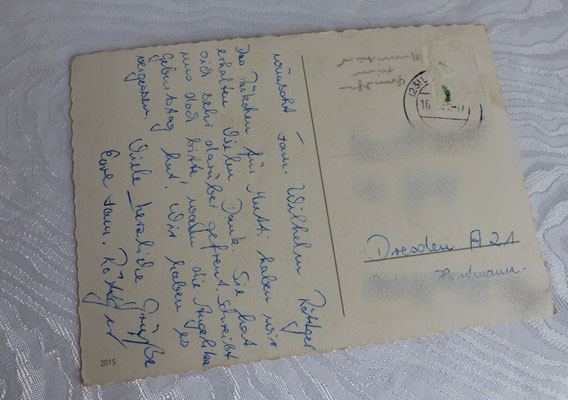 wünscht Fam. Wilhelm Röttger
Das Päckchen für Mutti haben wir
erhalten. Vielen Dank. Sie hat
sich sehr darüber gefreut. Schreibt
uns doch bitte wann die Angelika
Geburtstag hat! Wir haben es
vergessen.
Viele herzliche Grüße
Eure Fam. Röttger
2015
16
Dresden A 21
Hartmann-